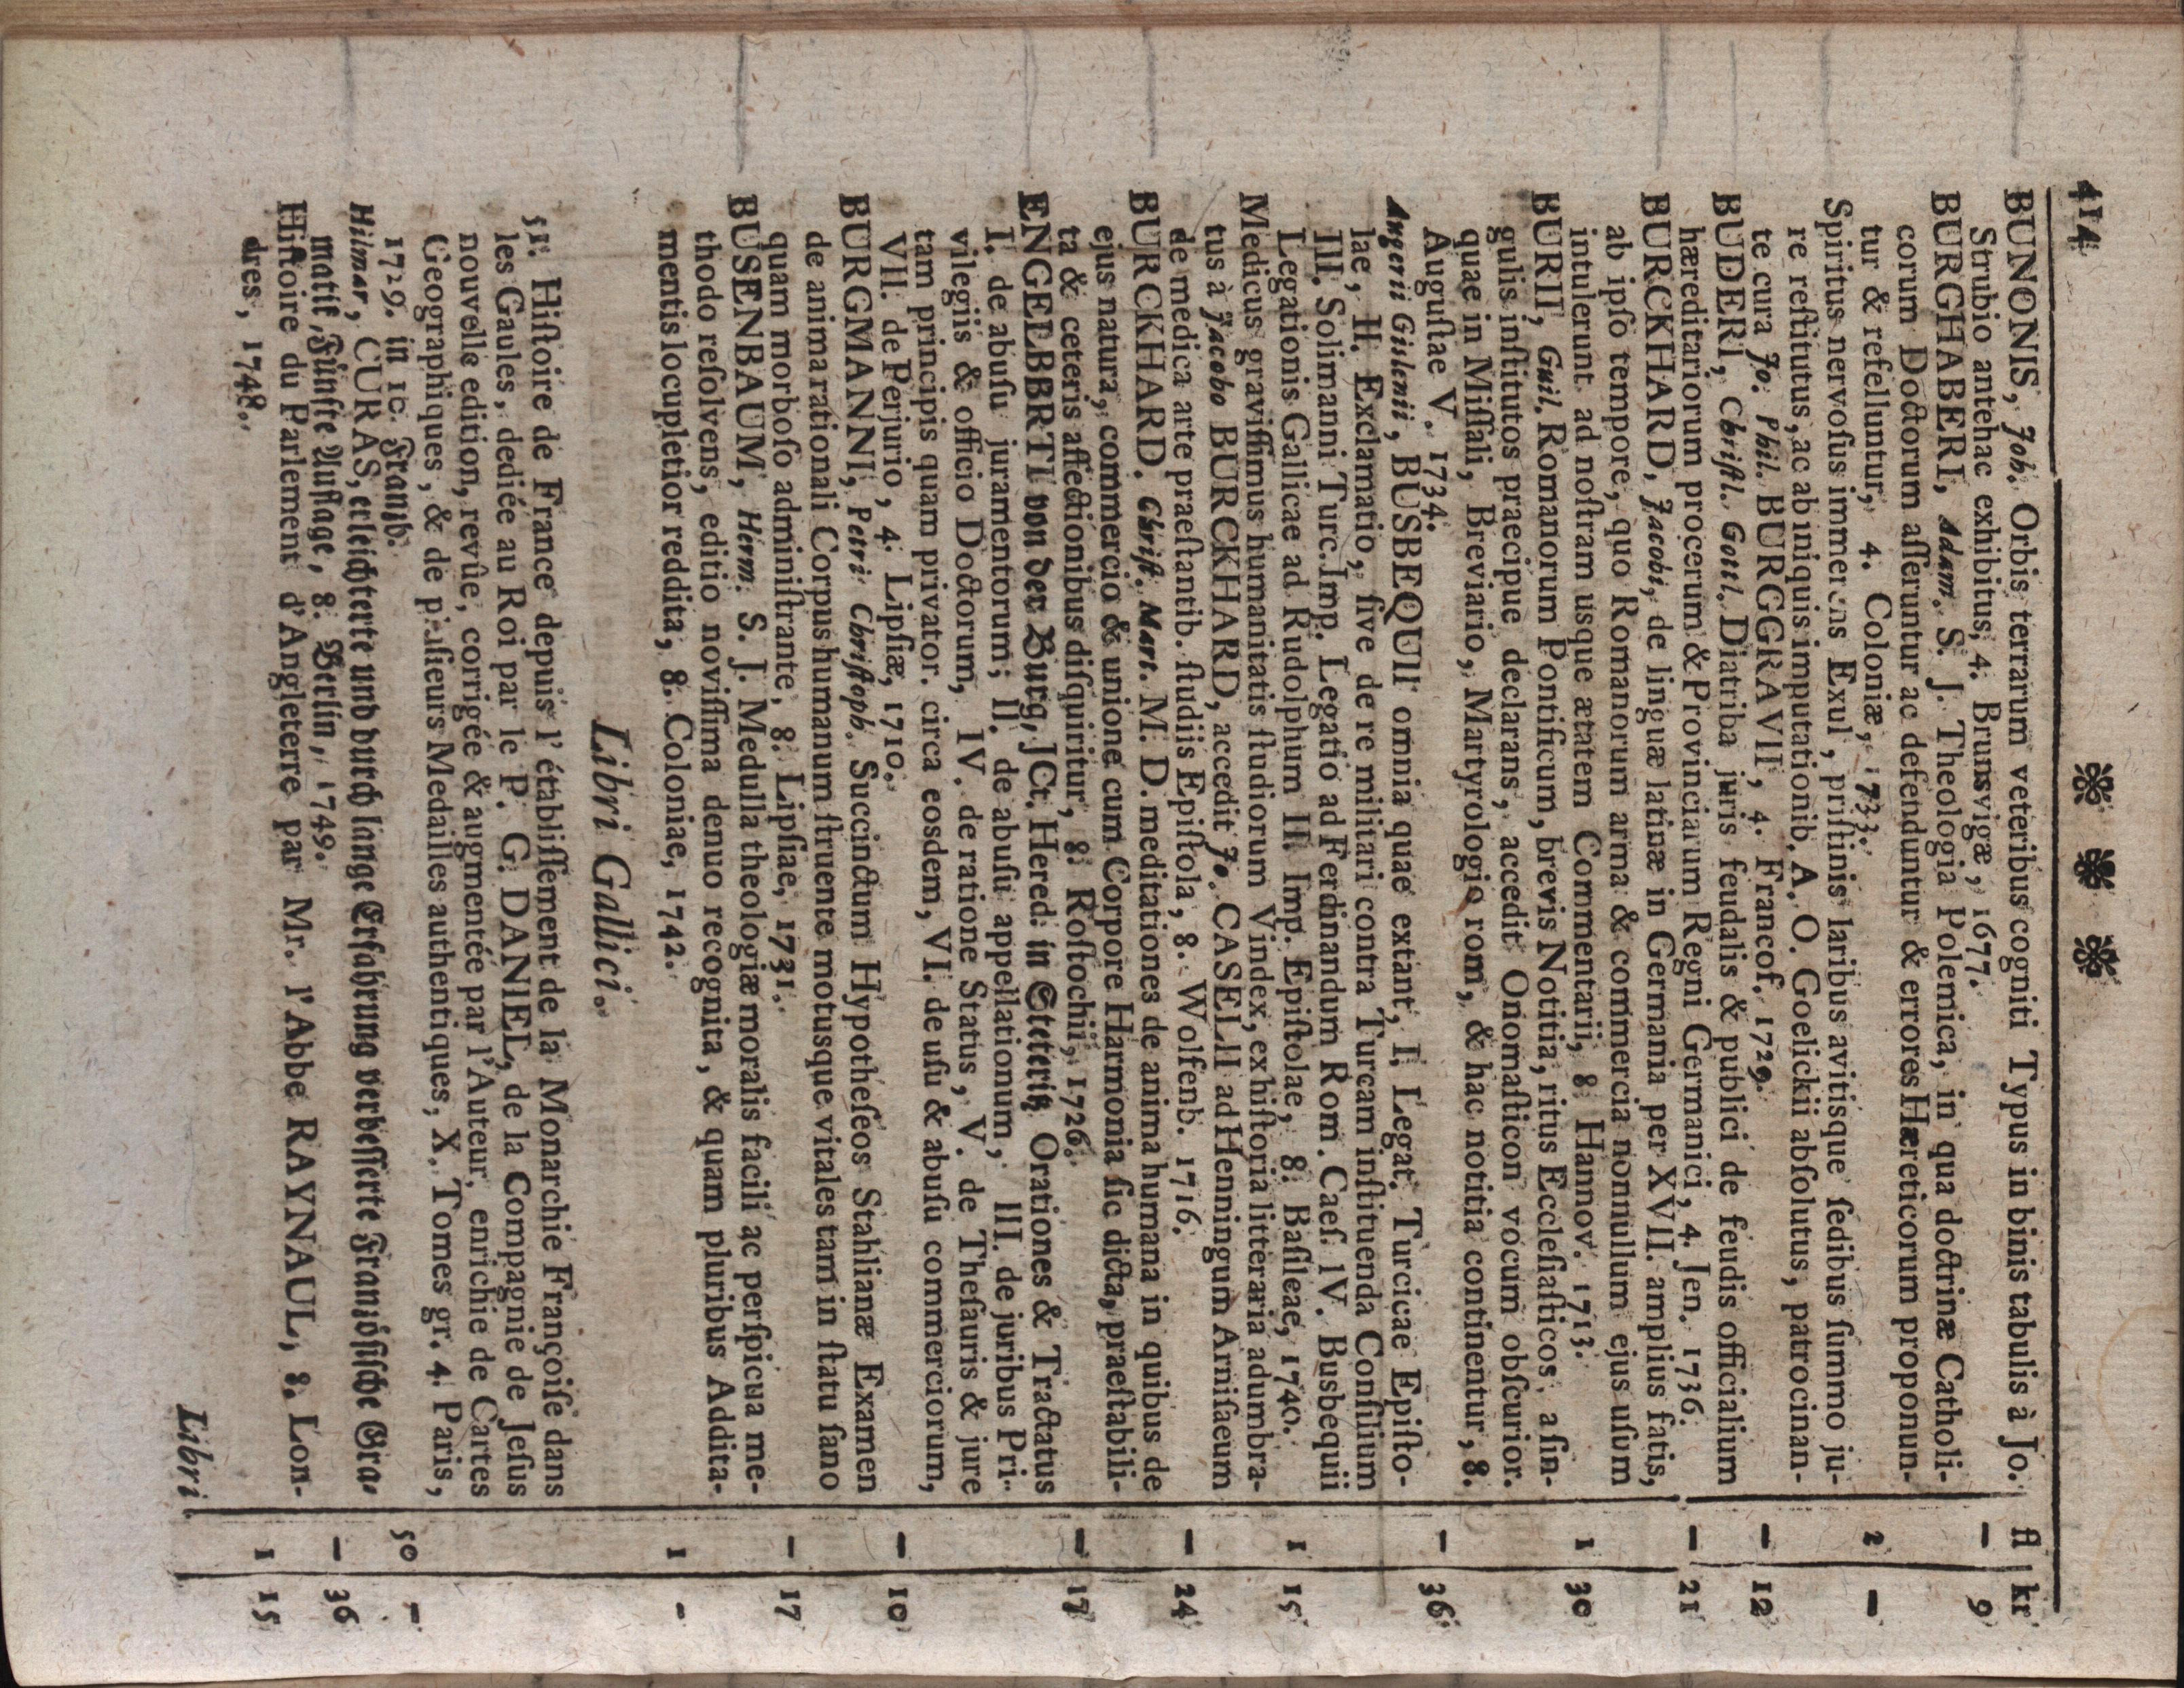 414 ❀ ❀ ❀
fl | kr
BUNONIS, Joh. Orbis terrarum veteribus cogniti Typus in binis tabulis à Jo.
Strubio antehac exhibitus, 4. Brunsvigæ, 1677. — 9
BURGHABERI, Adam. S. J. Theologia Polemica, in qua doctrinæ Catholi-
corum Doctorum aſſeruntur ac defenduntur & errores Hæreticorum proponun-
tur & refelluntur, 4. Coloniæ, 1733. 2 —
Spiritus nervoſus immerens Exul, priſtinis laribus avitisque ſedibus ſummo ju-
re reſtitutus, ac ab iniquis imputationib. A. O. Goelickii abſolutus, patrocinan-
te cura Jo. Phil. BURGGRAVII, 4. Francof. 1729. — 12
BUDERI, Chriſtl. Gottl. Diatriba juris feudalis & publici de feudis officialium
hæreditariorum procerum & Provinciarum Regni Germanici, 4. Jen. 1736. — 21
BURCKHARD, Jacobi, de linguæ latinæ in Germania per XVII. amplius fatis,
ab ipſo tempore, quo Romanorum arma & commercia nonnullum ejus uſum
intulerunt ad noſtram usque ætatem Commentarii, 8. Hannov. 1713. 1 30
BURII, Guil. Romanorum Pontificum, brevis Notitia, ritus Eccleſiaſticos, a ſin-
gulis inſtitutos praecipue declarans, accedit Onomaſticon vocum obſcurior.
quae in Miſſali, Breviario, Martyrologio rom, & hac notitia continentur, 8.
Auguſtae V. 1734. — 36
Angerii Gislenii, BUSBEQUII omnia quae extant, I. Legat. Turcicae Epiſto-
lae, II. Exclamatio, ſive de re militari contra Turcam inſtituenda Conſilium
III. Solimanni Turc. Imp. Legatio ad Ferdinandum Rom. Caeſ. IV. Busbequii
Legationis Gallicae ad Rudolphum II. Imp. Epiſtolae, 8. Baſileae, 1740. 1 15
Medicus graviſſimus humanitatis ſtudiorum Vindex, exhiſtoria litteraria adumbra-
tus à Jacobo BURCKHARD, accedit Jo. CASELII ad Henningum Arniſaeum
de medica arte praeſtantib. ſtudiis Epiſtola, 8. Wolfenb. 1716. — 24
BURCKHARD. Chriſt. Mart. M. D. meditationes de anima humana in quibus de
ejus natura, commercio & unione cum Corpore Harmonia ſic dicta, praeſtabili-
ta & ceteris affectionibus diſquiritur, 8. Roſtochii, 1726. — 17
ENGELBBRTI von der Burg, JCt. Hered. in Steteriz Orationes & Tractatus
I. de abuſu juramentorum; II. de abuſu appellationum, III. de juribus Pri-
vilegiis & officio Doctorum, IV. de ratione Status, V. de Theſauris & jure
tam principis quam privator. circa eosdem, VI. de uſu & abuſu commerciorum,
VII. de Perjurio, 4. Lipſiæ, 1710. — 10
BURGMANNI, Petri Chriſtoph. Succinctum Hypotheſeos Stahlianæ Examen
de anima rationali Corpus humanum ſtruente motusque vitales tam in ſtatu ſano
quam morboſo adminiſtrante, 8. Lipſiae, 1731. — 17
BUSENBAUM, Herm. S. J. Medulla theologiæ moralis facili ac perſpicua me-
thodo reſolvens, editio noviſſima denuo recognita, & quam pluribus Addita-
mentis locupletior reddita, 8. Coloniae, 1742. 1 -
Libri Gallici.
51. Hiſtoire de France depuis l'établiſſement de la Monarchie Françoiſe dans
les Gaules, dediée au Roi par le P. G. DANIEL, de la Compagnie de Jeſus
nouvelle edition, revûe, corrigée & augmentée par l'Auteur, enrichie de Cartes
Geographiques, & de pluſieurs Medailles authentiques, X. Tomes gr. 4. Paris,
1729. in 10. Franzb. 50 —
Hilmar, CURAS, erleichterte und durch lange Erfahrung verbeſſerte Franzöſiſche Gra-
matik, Fünfte Auflage, 8. Berlin, 1749. — 36
Hiſtoire du Parlement d'Angleterre par Mr. l'Abbe RAYNAUL, 8. Lon-
dres, 1748. 1 15
Libri